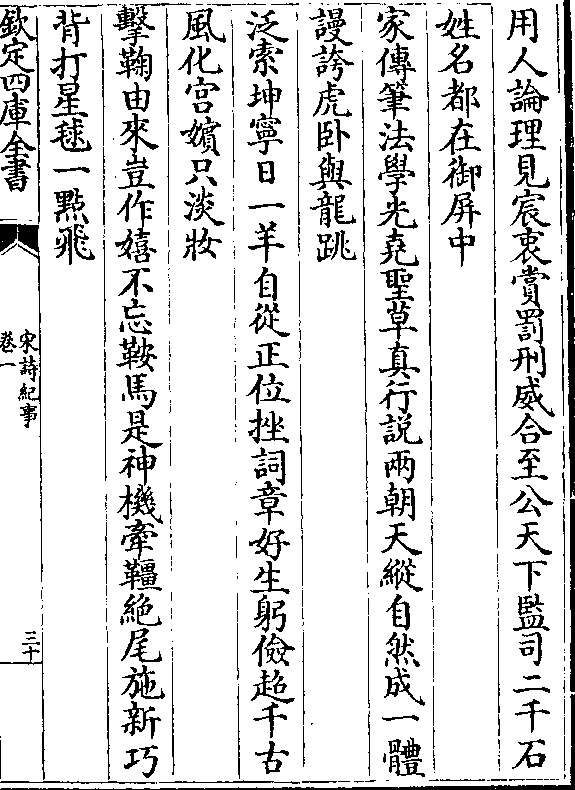 用人論理見宸衷賞罰刑威合至公天下監司二千石
姓名都在御屏中
家傳筆法學光堯聖草真行説兩朝天縱自然成一體
謾誇虎卧與龍跳
泛索坤寧日一羊自從正位挫詞章好生躬儉超千古
風化宫嬪只淡妝
擊鞠由來豈作嬉不忘鞍馬是神機牽韁絶尾施新巧
背打星毬一點飛
欽定四庫全書
宋詩紀事
卷一
三十